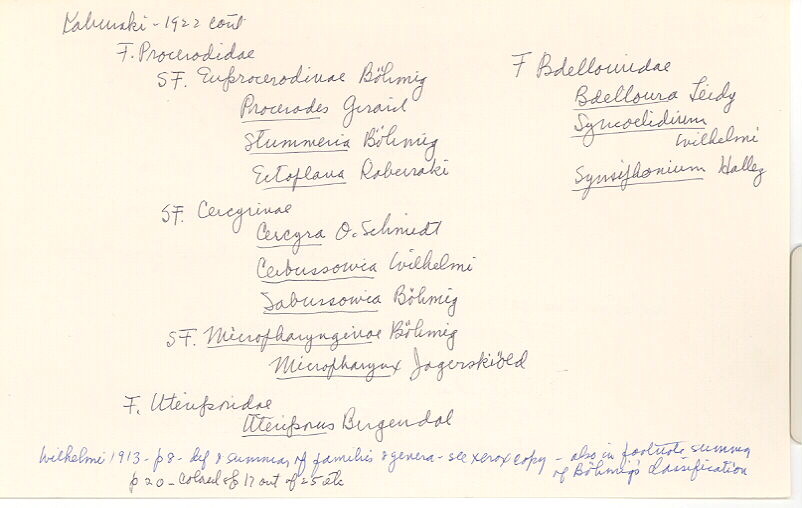 Kaburaki - 1922 cont
F. Procerodidae
SF. Euprocerodinae Böhmig
Procerodes Girard
Stummeria Böhmig
Ectoplana Kaburaki
SF. Cercyrinae
Cercyra O. Schmidt
Cerbussowia Wilhelmi
Sabussowia Böhmig
SF. Micropharynginae Böhmig
Micropharynx Jagerskiöld
F. Uteriporidae
Uteriporus Bergendal
F Bdellouridae
Bdelloura Leidy
Syncoelidium
Wilhelmi
Synsiphonium Hallez
Wilhelmi 1913 - p 8 - def & summary of families & genera - see xerox copy - also in footnote summary
of Böhmig's classification
p 20 - of 17 out of 25